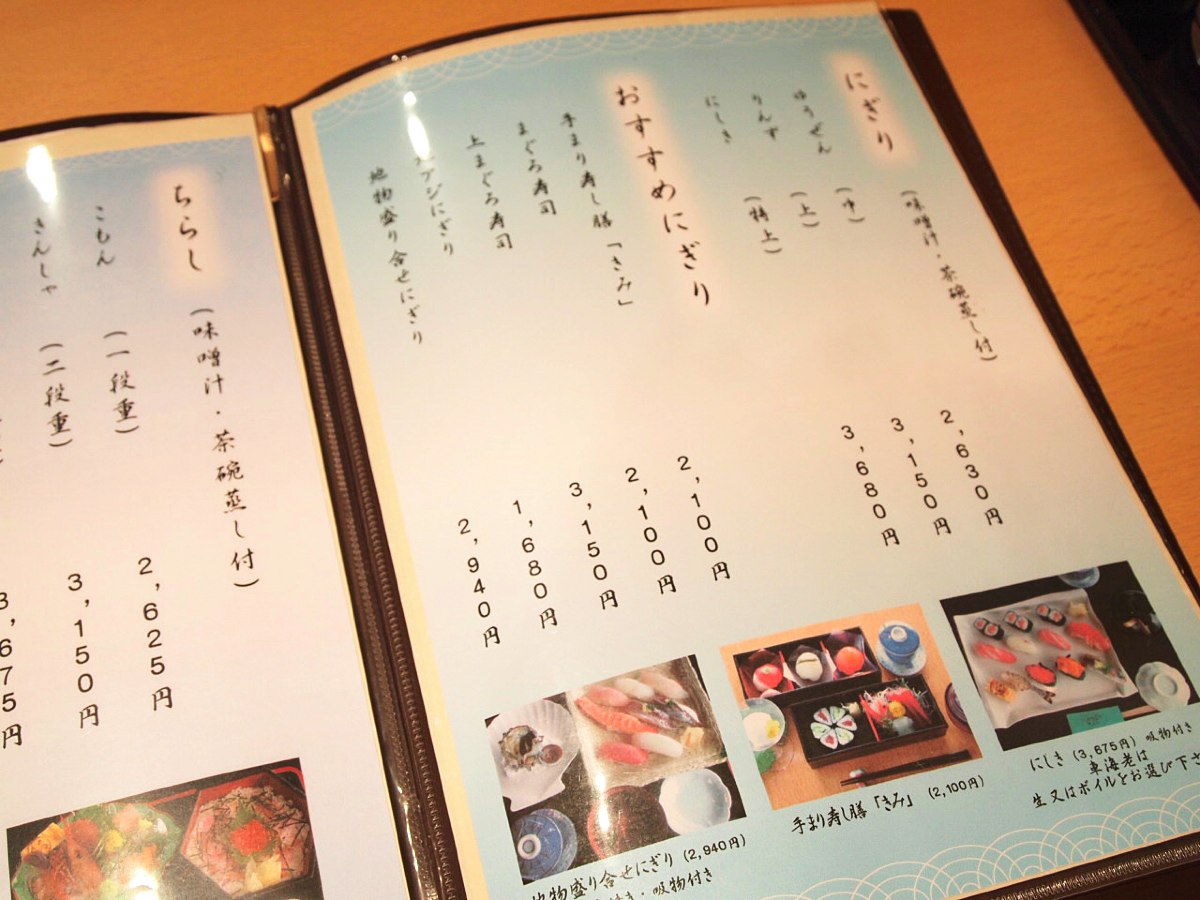 にぎり
(味噌汁・茶碗蒸し付)
ゆうぜん (中) 2,630円
りんず (上) 3,150円
にしき (特上) 3,680円
おすすめにぎり
手まり寿し膳「きみ」 2,100円
まぐろ寿司 2,100円
上まぐろ寿司 3,150円
アジにぎり 1,680円
地物盛り合せにぎり 2,940円
にしき (3,675円) 吸物付き
車海老は
生又はボイルをお選び下さ
手まり寿し膳「きみ」 (2,100円)
地物盛り合せにぎり (2,940円)
付き・吸物付き
ちらし
(味噌汁・茶碗蒸し付)
こもん (一段重) 2,625円
きんしゃ (二段重) 3,150円
3,675円